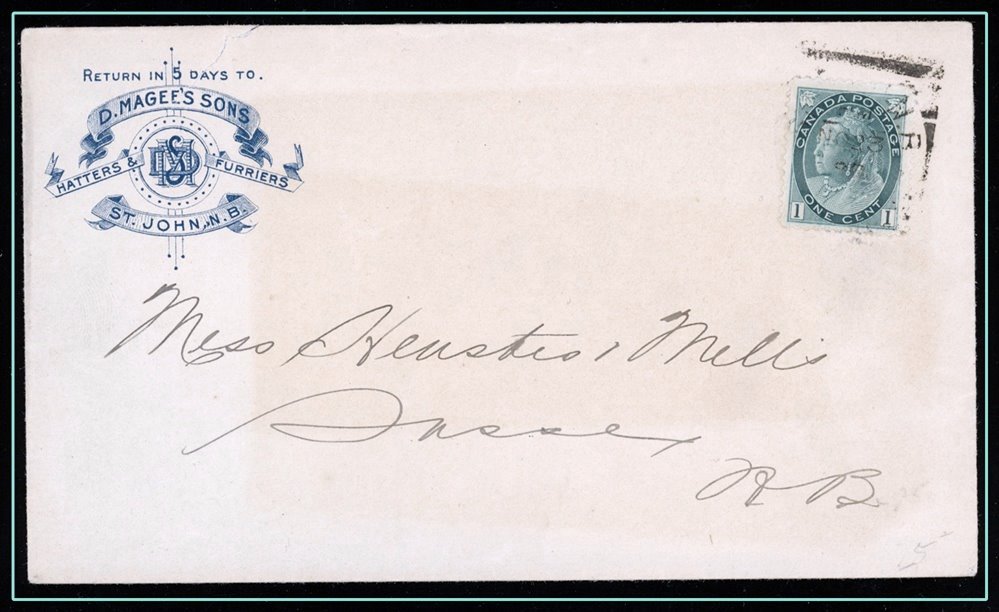 RETURN IN 5 DAYS TO.
D. MAGEE'S SONS
HATTERS & FURRIERS
ST. JOHN, N.B.
CANADA POSTAGE
1 ONE CENT 1
Mess & Mills
Sussex
N B
5